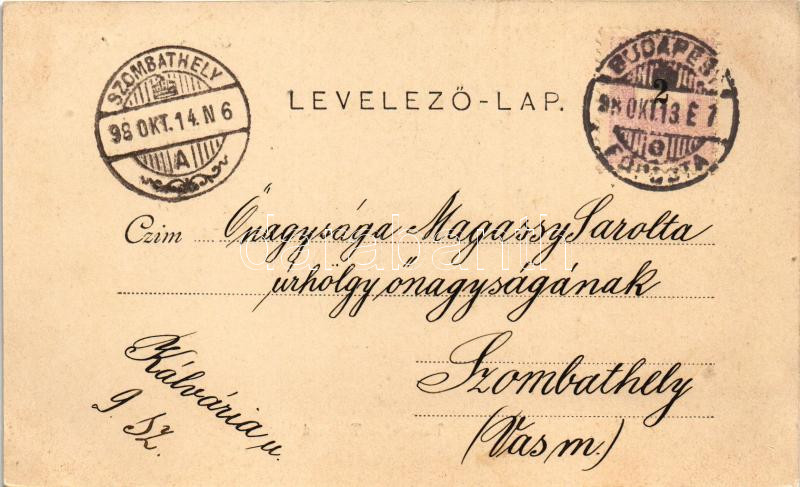 SZOMBATHELY
98 OKT. 14. N 6
A
LEVELEZŐ-LAP.
BUDAPEST
2
98 OKT. 13 É 1
FŐPOSTA
Czim Őnagysága Magassy Sarolta
úrhölgy őnagyságának
Szombathely
(Vas m.)
Kálvária u.
9. sz.